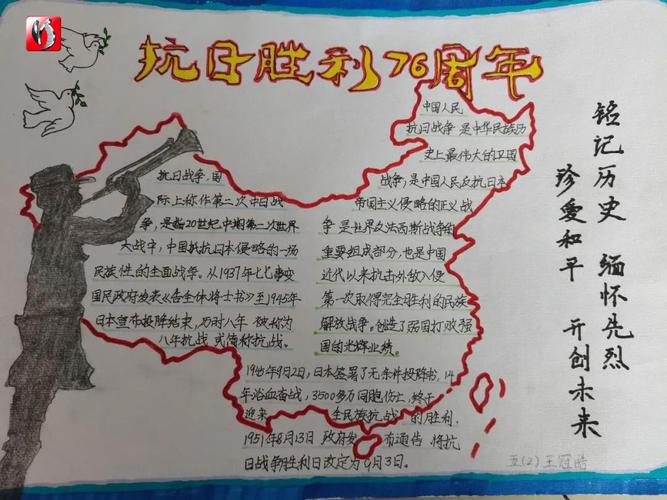 抗日胜利76周年
抗日战争,国
际上称作第二次中日战
争,是指20世纪中期第二次世界
大战中,中国抵抗日本侵略的一场
民族性的全面战争。从1937年七七事变
国民政府发表《告全体将士书》至1945年
日本宣布投降结束,历时八年 被称为
八年抗战 或简称抗战。
中国人民
抗日战争 是中华民族历
史上最伟大的卫国
战争;是中国人民反抗日本
帝国主义侵略的正义战
争 是世界反法西斯战争的
重要组成部分,也是中国
近代以来抗击外敌入侵
第一次取得完全胜利的民族
解放战争。创造了弱国打败强
国的光辉业绩
1945年9月2日,日本签署了无条件投降书,14
年浴血奋战,3500多万同胞伤亡,终于
迎来 全民族抗战 的胜利.
1951年8月13日 政府发 布通告 将抗
日战争胜利日改定为9月3日。
铭记历史 缅怀先烈
珍爱和平 开创未来
五(2)王冠皓